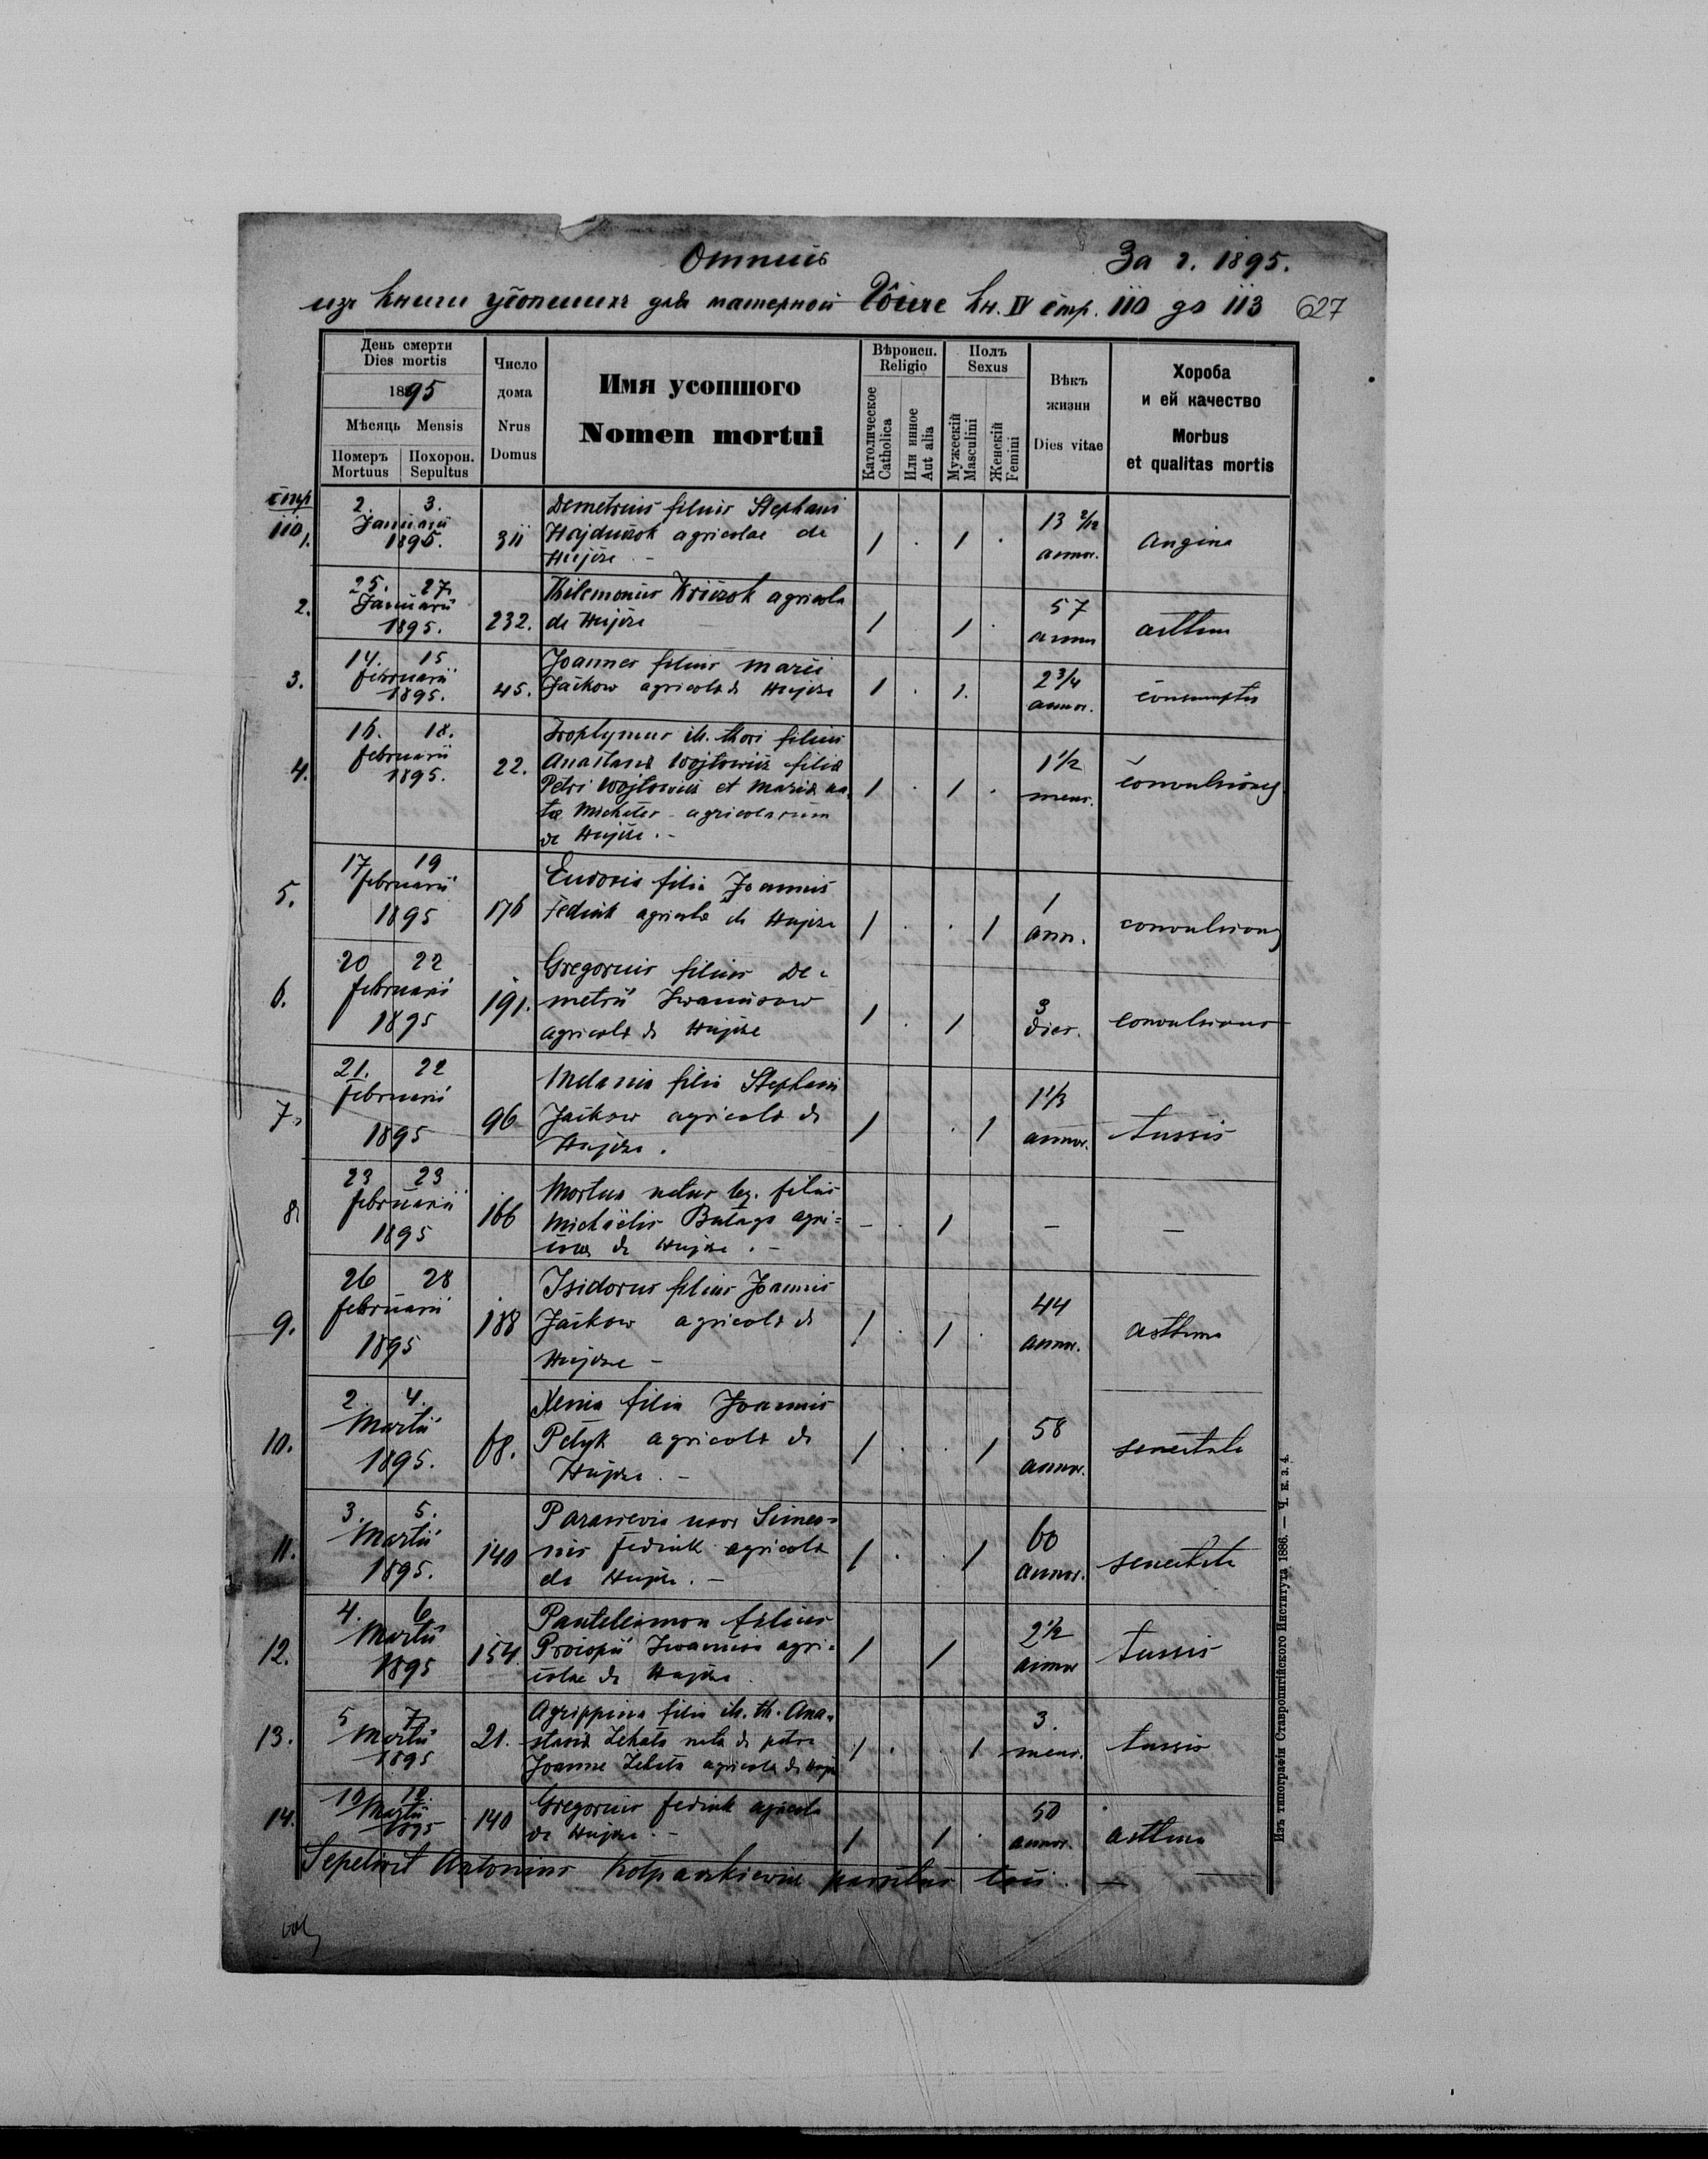 Отписъ За г. 1895.
изъ книги усопшихъ для матерной кн. IV стр. 110 до 113 627
День смерти
Dies mortis
1895
Мѣсяць Mensis
Померъ Похорон.
Mortuus Sepultus
Число
дома
Nrus
Domus
Имя усопшого
Nomen mortui
Вѣроисп.
Religio
Католическое
Catholica
Или инное
Aut alia
Полъ
Sexus
Мужескій
Masculini
Женскій
Femini
Вѣкъ
жизни
Dies vitae
Хороба
и ей качество
Morbus
et qualitas mortis
стр
110
1. 2. 3. Januarii 1895. 311 1 . 1 . 13 2/12 annor. angina
Demetrius filius Stephani
agricolae de
Hujcze -
2. 25. 27. Januarii 1895. 232. 1 . 1 . 57 annor asthma
agricola
de Hujcze
3. 14. 15 februarii 1895. 45. 1 . 1. 2 3/4 annor.
Joannes filius
Jackow agricolæ de Hujcze
4. 16. 18. februarii 1895. 22. 1 . 1 . 1 1/2 mens. convulsiones
ill. thori filius
Anastasiæ Wojtowicz filiæ
Petri Wojtowicz et Mariæ na-
tæ agricolarum
de Hujcze . -
5. 17 19 februarii 1895 176 1 . . 1 1 ann. convulsiones
Eudoxia filia Joannis
Fedink agricolæ de Hujcze
6. 20 22 februarii 1895 191. 1 . 1 3 dier. convulsiones
Gregorius filius De-
metrii
agricolæ de Hujcze
7. 21. 22 februarii 1895 96 1 . 1 1 1/3 annor. tussis
Melania filia Stephani
Jackow agricolæ de
Hujcze .
8. 23 23 februarii 1895 166 - . 1 - -
Mortuus natus leg. filius
Michaëlis agri=
colæ de Hujcze . -
9. 26 28 februarii 1895 188 1 . 1 . 44 annor. asthma
Isidorus filius Joannis
Jackow agricolæ de
Hujcze -
10. 2. 4. Martii 1895. 68. 1 . . 1 58 annor. senectute
Xenia filia Joannis
Petyk agricolæ de
Hujcze . -
11. 3. 5. Martii 1895. 140 1 . . 1 60 annor. senectute
Parascevia uxor Simeo=
nis Fedink agricolæ
de Hujcze . -
12. 4. 6 Martii 1895 154. 1 1 2 1/2 annor tussis
Panteleimon filius
Procopii agri-
colae de Hujcze .
13. 5 7. Martii 1895 21. 1 . . 1 3. mens. tussis
Agrippina filia ill. th. Ana-
stasiæ natæ de patre
Joanne agricola de
14. 10 12. Martii 1895 140 1 1 . 50 annor. asthma
Gregorius Fedink agricola
de Hujcze . -
Sepelivit Antonius parochus loci . -
Изъ типографіи Ставропигійского Института 1886. — Ч. к. з. 4.